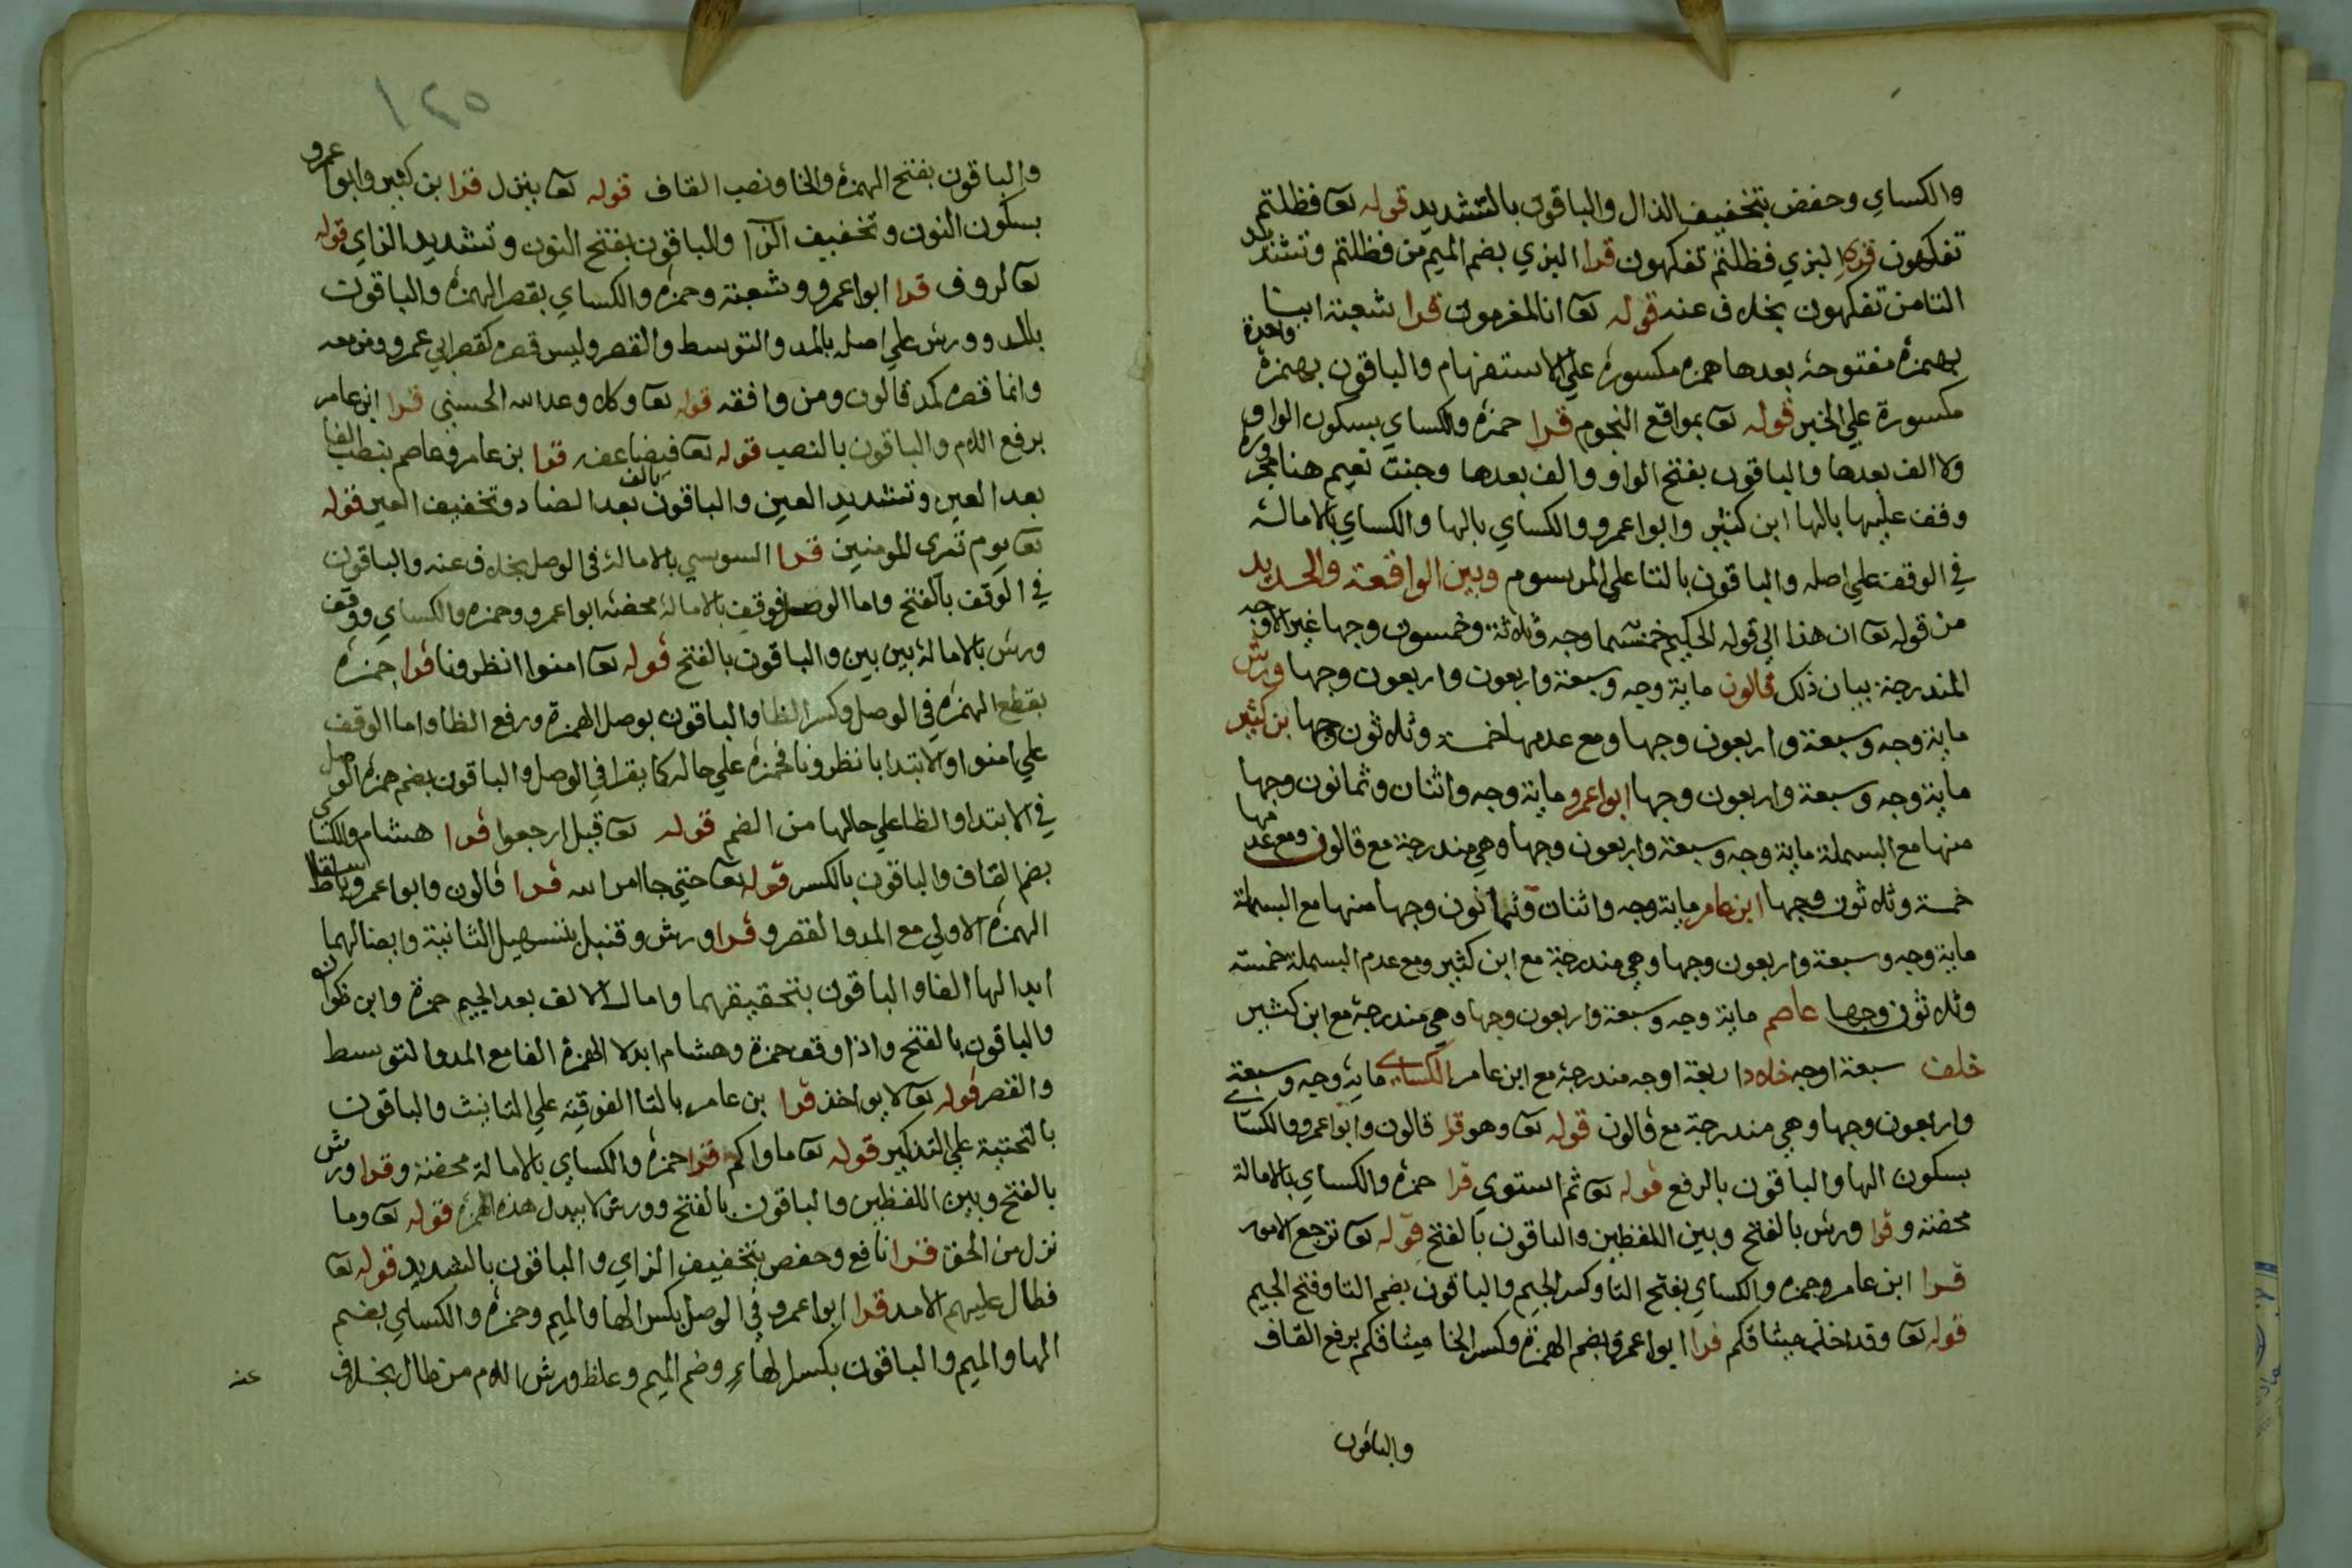 والكساي وحفص بتخفيف الذال والباقون بالتشديد قوله تعا فظلتم
تفكهون البزي فظلتم تفكهون قرا البزي بضم الميم من فظلتم وتشديد
التا من تفكهون بخلاف عنه قوله تعا انا لمغرمون قرا شعبة ايننا
بهمزة مفتوحة بعدها همزه مكسورة علي الاستفهام والباقون بهمزة واحدة
مكسورة علي الخبر قوله تعا بمواقع النجوم قرا حمزه والكساي بسكون الواو
ولا الف بعدها والباقون بفتح الواو والف بعدها وجنت نعيم هنا مجرورة
وقف عليها بالها ابن كثير وابوا عمرو والكساي بالها والكساي بالامالة
في الوقف علي اصله والباقون بالتا علي المرسوم وبين الواقعة والحديد
من قوله تعا ان هذا الي قوله الحكيم خمسما وجه وثلاثة وخمسون وجها غير الاوجه
المندرجة بيان ذلك قالون ماية وجه وسبعة واربعون واربعون وجها ورش
ماية وجه وسبعة واربعون وجها ومع عدمها خمسة وثلاثون وجها بن كثير
ماية وجه وسبعة واربعون وجها ابوا عمرو ماية وجه واثنان وثمانون وجها
منها مع البسملة ماية وجه وسبعة واربعون وجها وهي مندرجة مع قالون ومع عدمها
خمسة وثلاثون وجها ابن عامر ماية وجه واثنان وثمانون وجها منها مع البسملة
ماية وجه وسبعة واربعون وجها وهي مندرجة مع ابن كثير ومع عدم البسملة خمسة
وثلاثون وجها عاصم ماية وجه وسبعة واربعون وجها وهي مندرجة مع ابن كثير
خلف سبعة اوجه خلاد اربعة اوجه مندرجة مع ابن عامر الكساي ماية وجه وسبعة
واربعون وجها وهي مندرجة مع قالون قوله تعا وهو قرا قالون وابوا عمرو والكساي
بسكون الها والباقون بالرفع قوله تعا ثم استوي قرا حمزه والكساي بالامالة
محضة وقرا ورش بالفتح وبين اللفظين والباقون بالفتح قوله تعا ترجع الامور
قرا ابن عامر وحمزه والكساي بفتح التا وكسر الجيم والباقون بضم التا وفتح الجيم
قوله تعا وقد اخذ ميثاقكم قرا ابوا عمرو بضم الهمزة وكسر الخا ميثاقكم برفع القاف
والباقون
١٢٥
والباقون بفتح الهمزه والخا ونصب القاف قوله تعا ينزل قرا بن كثير وابوا عمرو
بسكون النون وتخفيف الزا والباقون بفتح النون وتشديد الزاي قوله
تعا لروف قرا ابوا عمرو وشعبة وحمزه والكساي بقصر الهمزه والباقون
بالمد وورش علي اصله بالمد والتوسط والقصر وليس قصره كقصر ابي عمرو ومن معه
وانما قصره كمد قالون ومن وافقه قوله تعا وكلا وعد الله الحسني قرا ابن عامر
برفع اللام والباقون بالنصب قوله تعا فيضاعفه قرا بن عامر وعاصم بنصب الفا
بعد العين وتشديد العين والباقون بالف بعد الضاد وتخفيف العين قوله
تعا يوم تري المومنين قرا السوسي بالامالة في الوصل بخلاف عنه والباقون
في الوقف بالفتح واما الوصل فوقف بالامالة محضة ابوا عمرو وحمزه والكساي ووقف
ورش بالامالة بين بين والباقون بالفتح قوله تعا امنوا انظرونا قرا حمزه
بقطع الهمزه في الوصل وكسر الظا والباقون بوصل الهمزة ورفع الظا واما الوقف
علي امنوا والابتدا بانظرونا فحمزه علي حاله كما يقرا في الوصل والباقون بضم همزه الوصل
في الابتدا والظا علي حالها من الضم قوله تعا قيل ارجعوا قرا هشام والكساي
بضم القاف والباقون بالكسر قوله تعا حتي جا امر الله قرا قالون وابوا عمرو باسقاط
الهمزه الاولي مع المد والقصر وقرا ورش وقنبل بتسهيل الثانية وايضا لهما
ابدالها الفا والباقون بتحقيقهما وامال الالف بعد الجيم حمزة وابن ذكوان
والباقون بالفتح واذا وقف حمزة وهشام ابدلا الهمزة الفا مع المد والتوسط
والقصر قوله تعا لا يواخذ قرا بن عامر بالتا الفوقية علي التانيث والباقون
بالتحتية علي التذكير قوله تعا ماواكم قرا حمزه والكساي بالامالة محضة وقرا ورش
بالفتح وبين اللفظين والباقون بالفتح وورش لا يبدل هذه الهمزه قوله تعا وما
نزل من الحق قرا نافع وحفص بتخفيف الزاي والباقون بالتشديد قوله تعا
فطال عليهم الامد قرا ابوا عمرو في الوصل بكسر الها والميم وحمزه والكساي بضم
الها والميم والباقون بكسر الهاء وضم الميم وغلظ ورش اللام من طال بخلاف
عنه